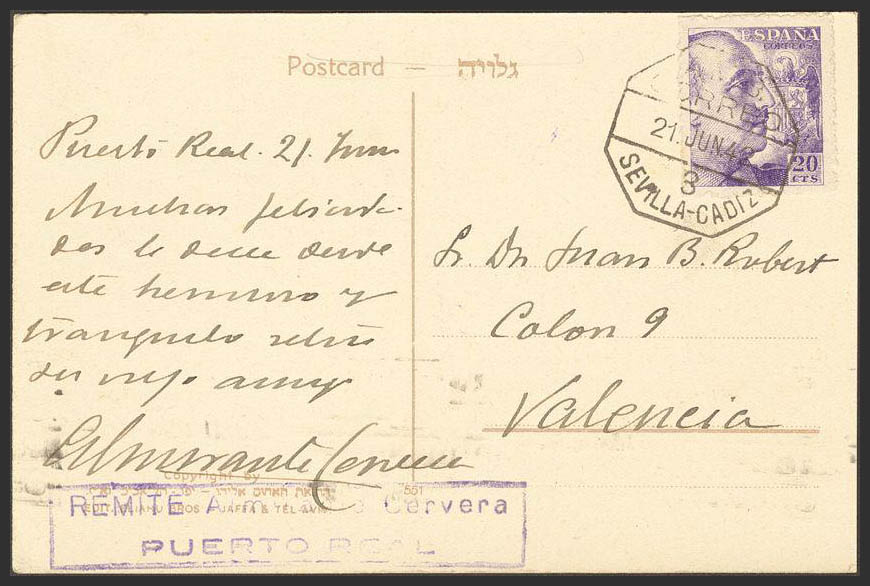 Postcard — גלויה
ESPAÑA
CORREOS
20
CTS
CORREO
21 JUN 4
3
SEVILLA-CADIZ
Puerto Real. 21. Junio
Muchas felicida-
des le desea desde
este hermoso y
tranquilo retiro
su viejo amigo
Almirante Cervera
Sr. Dn Juan B. Robert
Colon 9
Valencia
Copyright by
551
EDIT. ELIAHU BROS JAFFA & TEL-AVIV
REMITE Cervera
PUERTO REAL